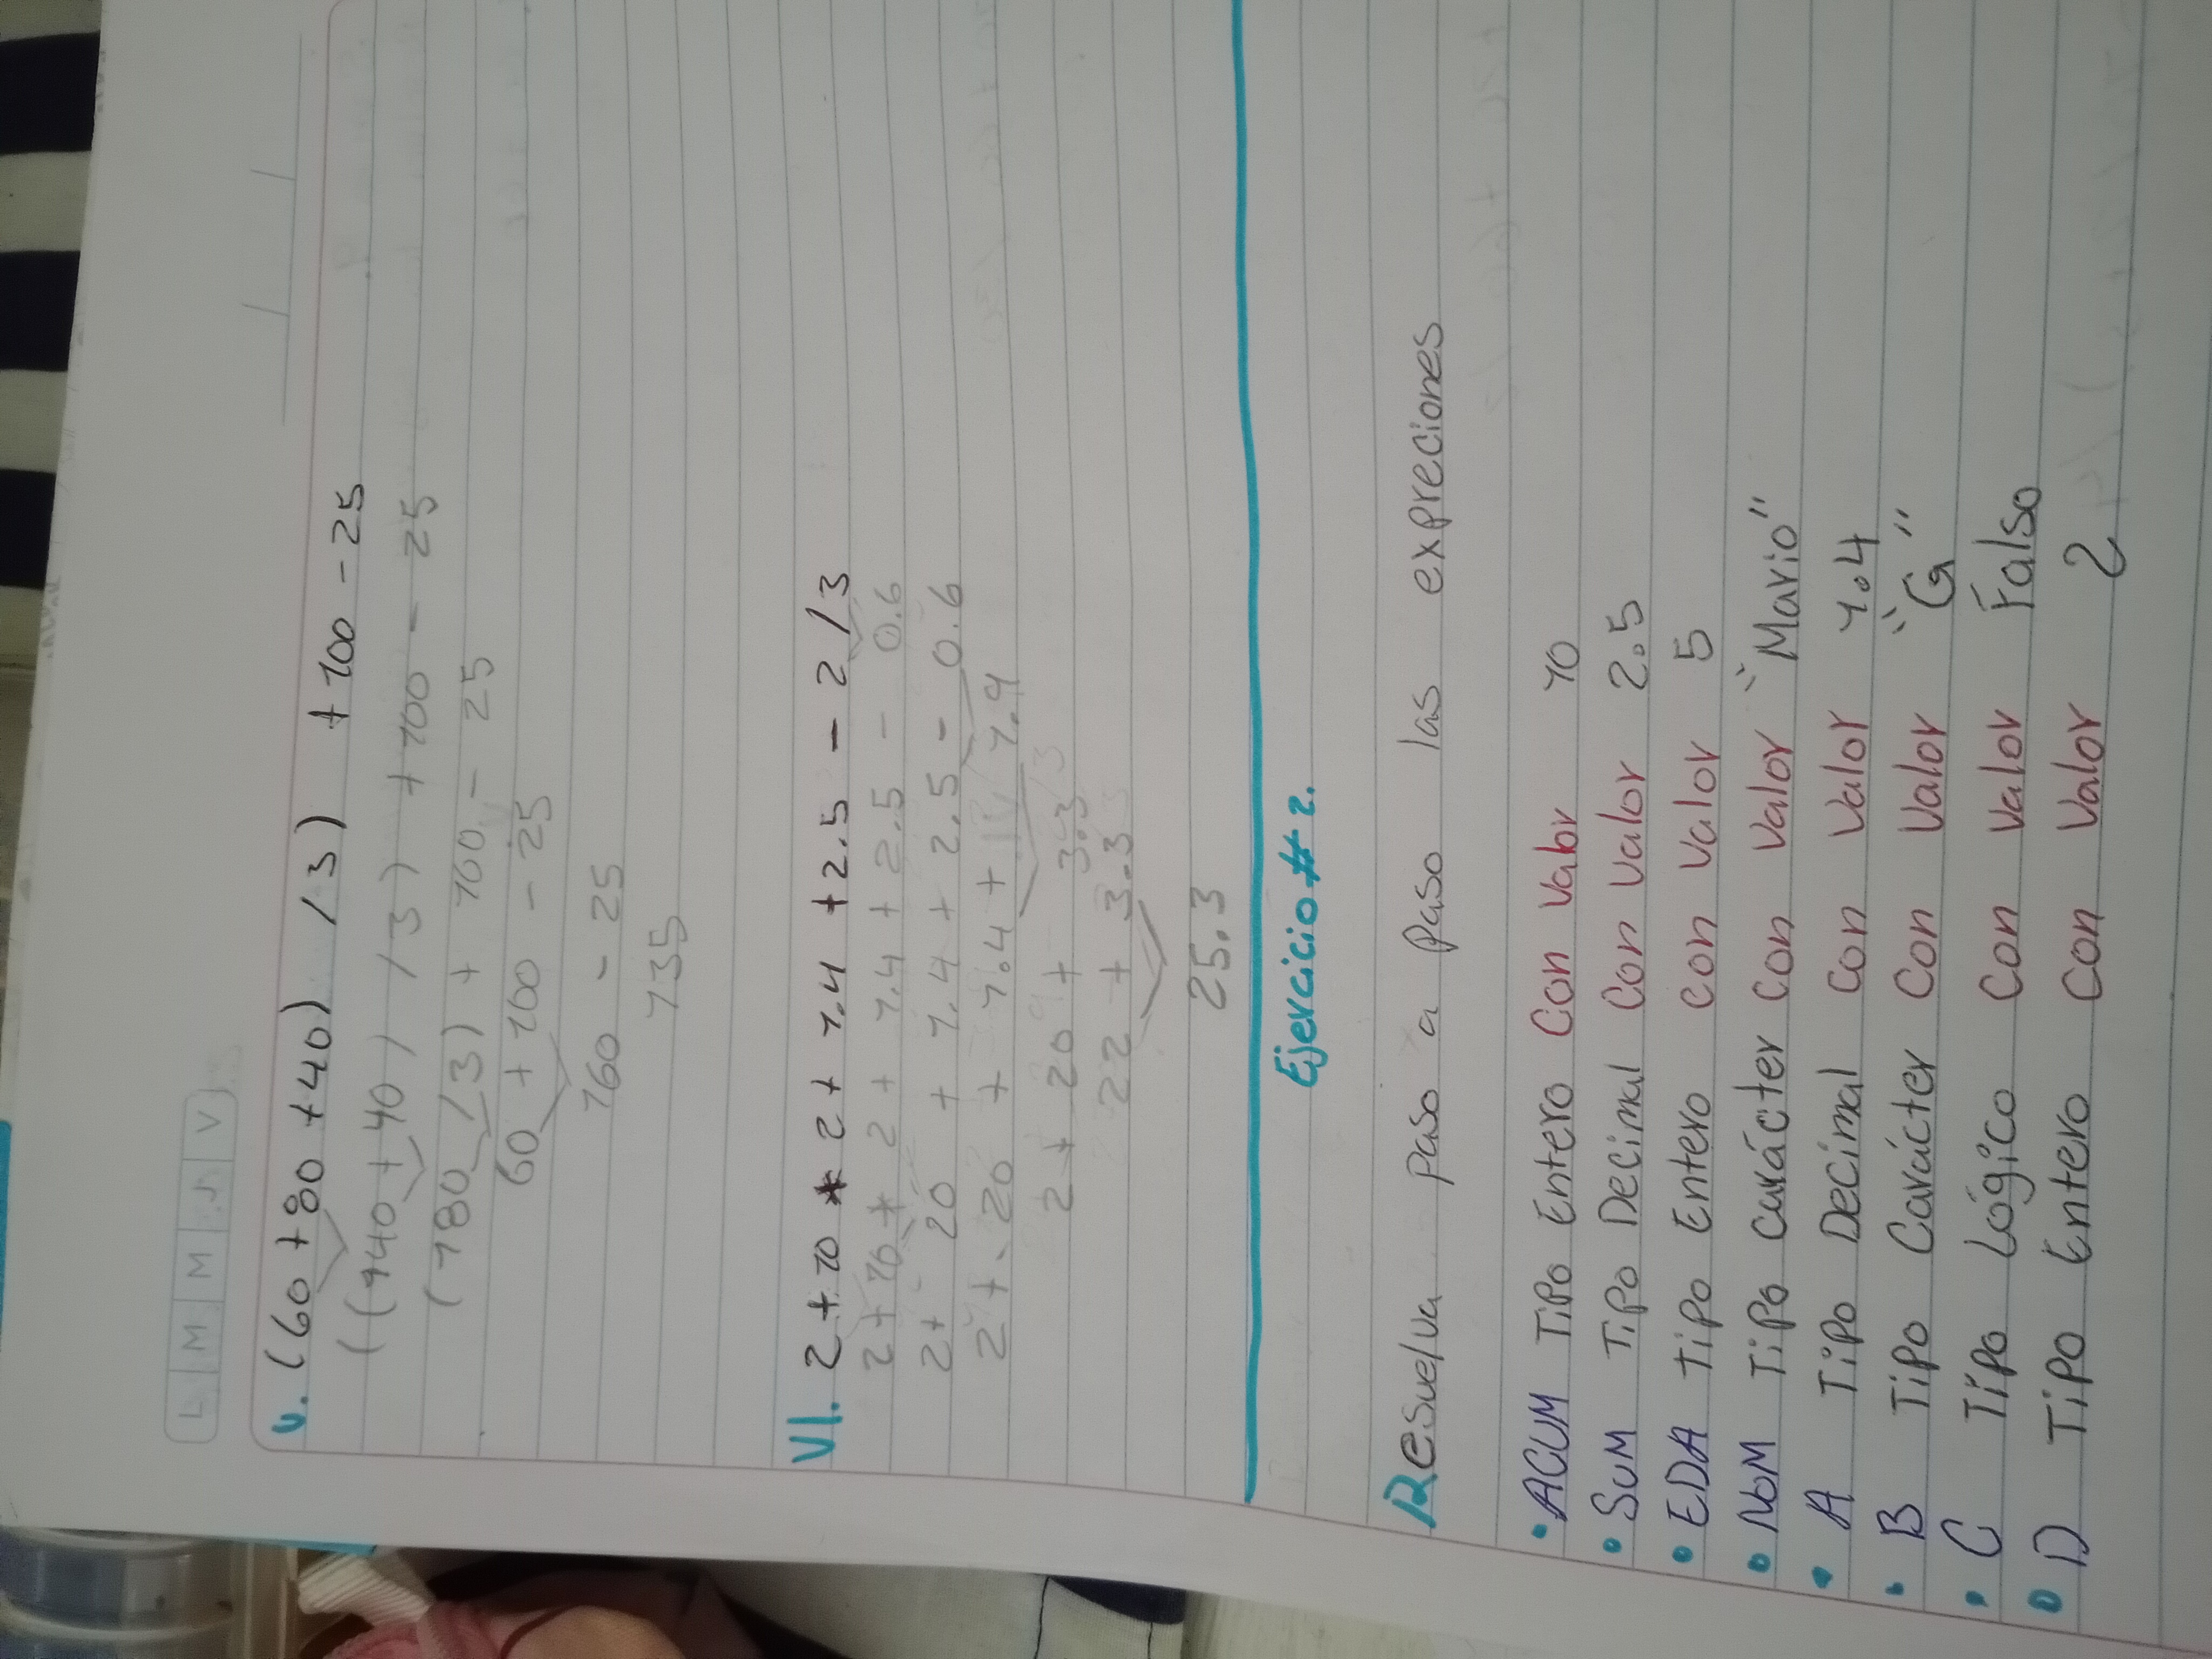 L M M J V
V. (60 +80 +40) /3) + 100 - 25
((140 + 40) /3) + 100 - 25
(180 /3) + 100 - 25
60 + 100 - 25
160 - 25
135
VI. 2 + 10 * 2 + 1.4 + 2.5 - 2 / 3
2 + 10 * 2 + 1.4 + 2.5 - 0.6
2 + 20 + 1.4 + 2.5 - 0.6
2 + 20 + 1.4 + 1.9
2 + 20 + 3.3
22 + 3.3
25.3
Ejercicio # 2.
Resuelva paso a paso las expreciones
• ACUM Tipo Entero Con Valor 10
• SUM Tipo Decimal Con Valor 2.5
• EDA Tipo Entero Con Valor 5
• NOM Tipo carácter Con Valor "Mario"
• A Tipo Decimal Con Valor 1.4
• B Tipo Carácter Con Valor "G"
• C Tipo Lógico Con Valor Falso
• D Tipo Entero Con Valor 2